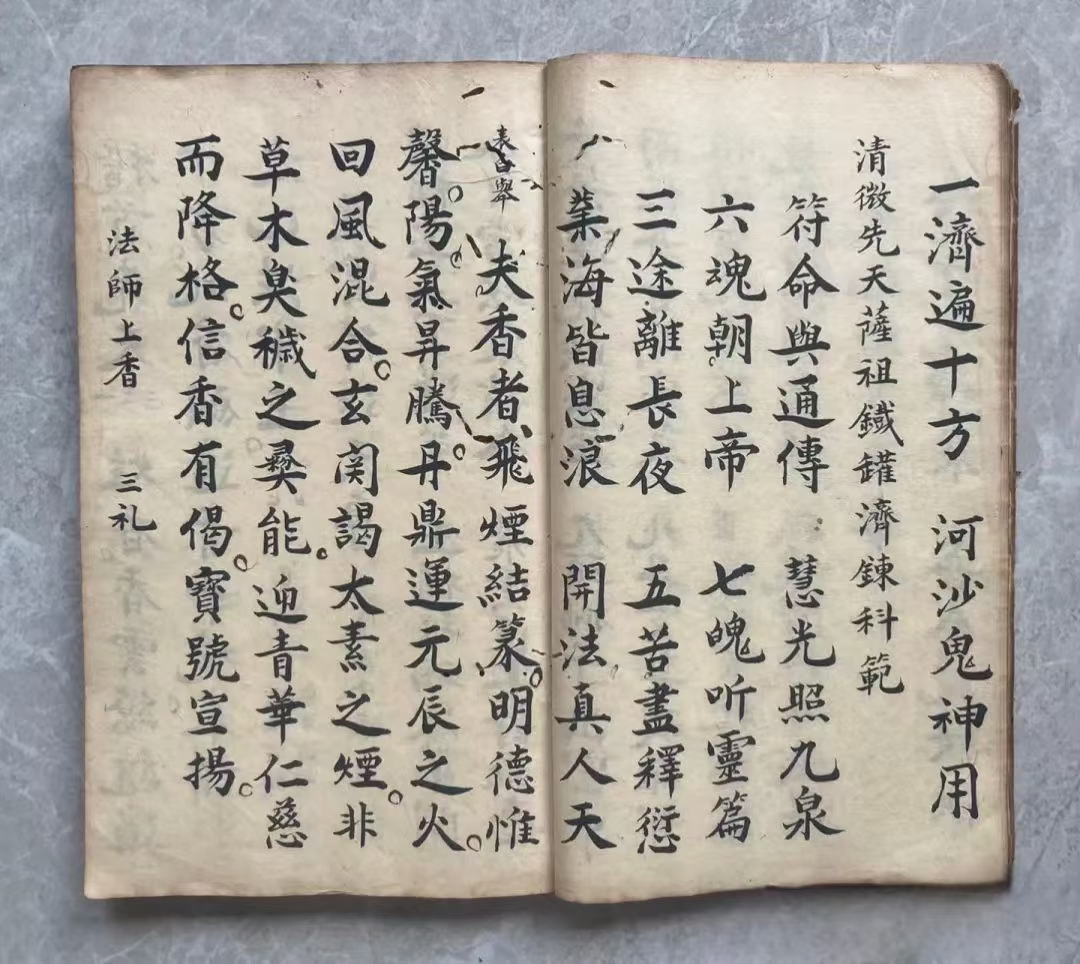 一濟遍十方　河沙鬼神用
清微先天薩祖鐵罐濟鍊科範
符命與通傳　慧光照九泉
六魂朝上帝　七魄听靈篇
三途離長夜　五苦盡釋愆
業海皆息浪　開法真人天
表白舉
夫香者飛煙結篆。明德惟
馨。陽氣昇騰。丹鼎運元辰之火。
回風混合。玄関謁太素之煙。非
草木臭穢之彝能。迎青華仁慈
而降格。信香有偈。寶號宣揚。
法師上香　三礼